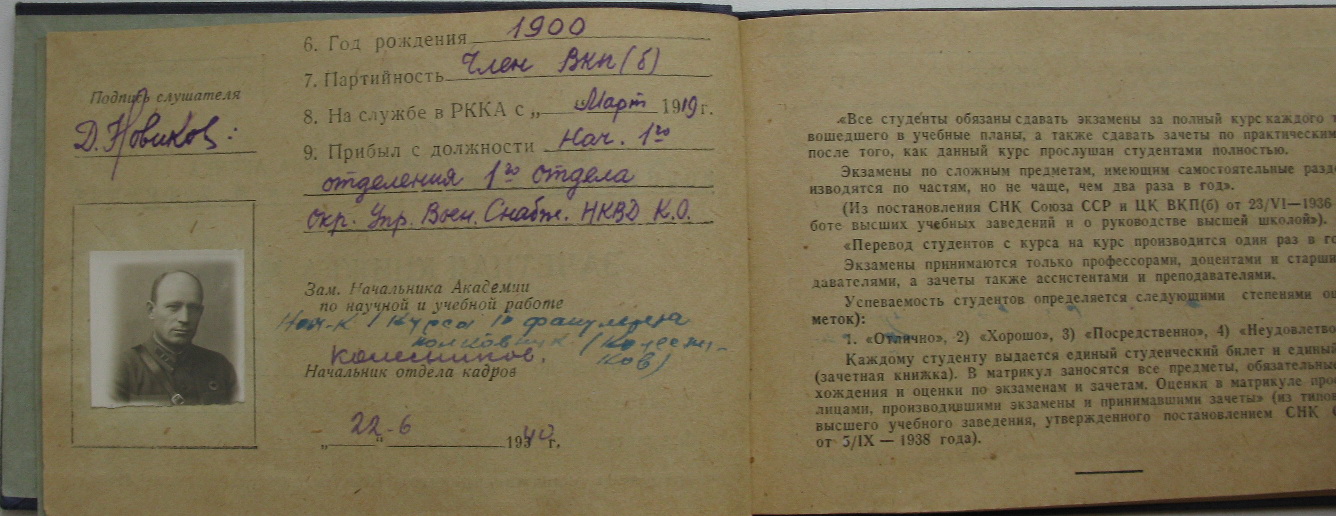 Подпись слушателя
Д. Новиков
6. Год рождения 1900
7. Партийность Член ВКП(б)
8. На службе в РККА с „ Март 1919г.
9. Прибыл с должности Нач. 1го
отделения 1го отдела
Окр. Упр. Воен. Снабж. НКВД К.О.
Зам. Начальника Академии
по научной и учебной работе
Нач-к 1 курса факультета
полковник (Колесни-
ков)
Колесников.
Начальник отдела кадров
„22“-6 1940г.
«Все студенты обязаны сдавать экзамены за полный курс каждого
вошедшего в учебные планы, а также сдавать зачеты по практическим
после того, как данный курс прослушан студентами полностью.
Экзамены по сложным предметам, имеющим самостоятельные разде
изводятся по частям, но не чаще, чем два раза в год».
(Из постановления СНК Союза ССР и ЦК ВКП(б) от 23/VI—1936
боте высших учебных заведений и о руководстве высшей школой»).
«Перевод студентов с курса на курс производится один раз в го
Экзамены принимаются только профессорами, доцентами и старши
давателями, а зачеты также ассистентами и преподавателями.
Успеваемость студентов определяется следующими степенями оц
меток):
1. «Отлично», 2) «Хорошо», 3) «Посредственно», 4) «Неудовлетво
Каждому студенту выдается единый студенческий билет и единый
(зачетная книжка). В матрикул заносятся все предметы, обязательные
хождения и оценки по экзаменам и зачетам. Оценки в матрикуле про
лицами, производившими экзамены и принимавшими зачеты» (из типов
высшего учебного заведения, утвержденного постановлением СНК С
от 5/IX — 1938 года).